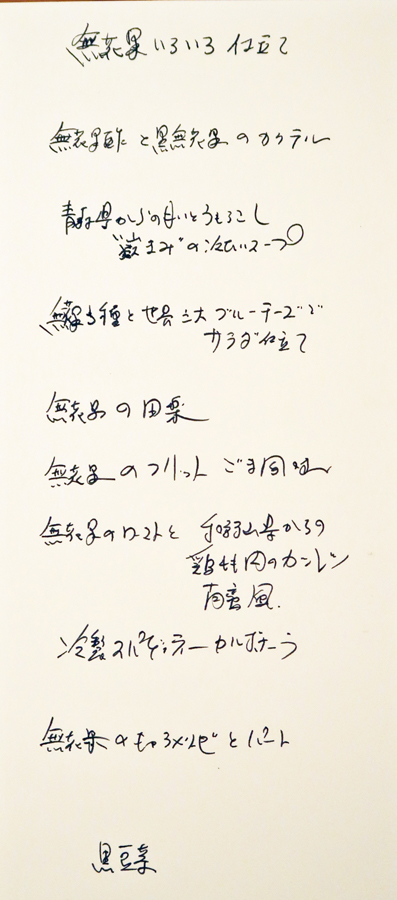 無花果いろいろ仕立て
無花果酢と黒無花果のカクテル
青森県からの甘いとうもろこし
"嶽きみ"の冷たいスープ
無花果3種と世界三大ブルーチーズで
サラダ仕立て
無花果の田楽
無花果のフリット ごま風味
無花果のローストと 和歌山県からの
鶏もも肉のカンレン
南蛮風.
冷製スパゲッティーカルボナーラ
無花果のキャラメリゼとパート
黒豆茶